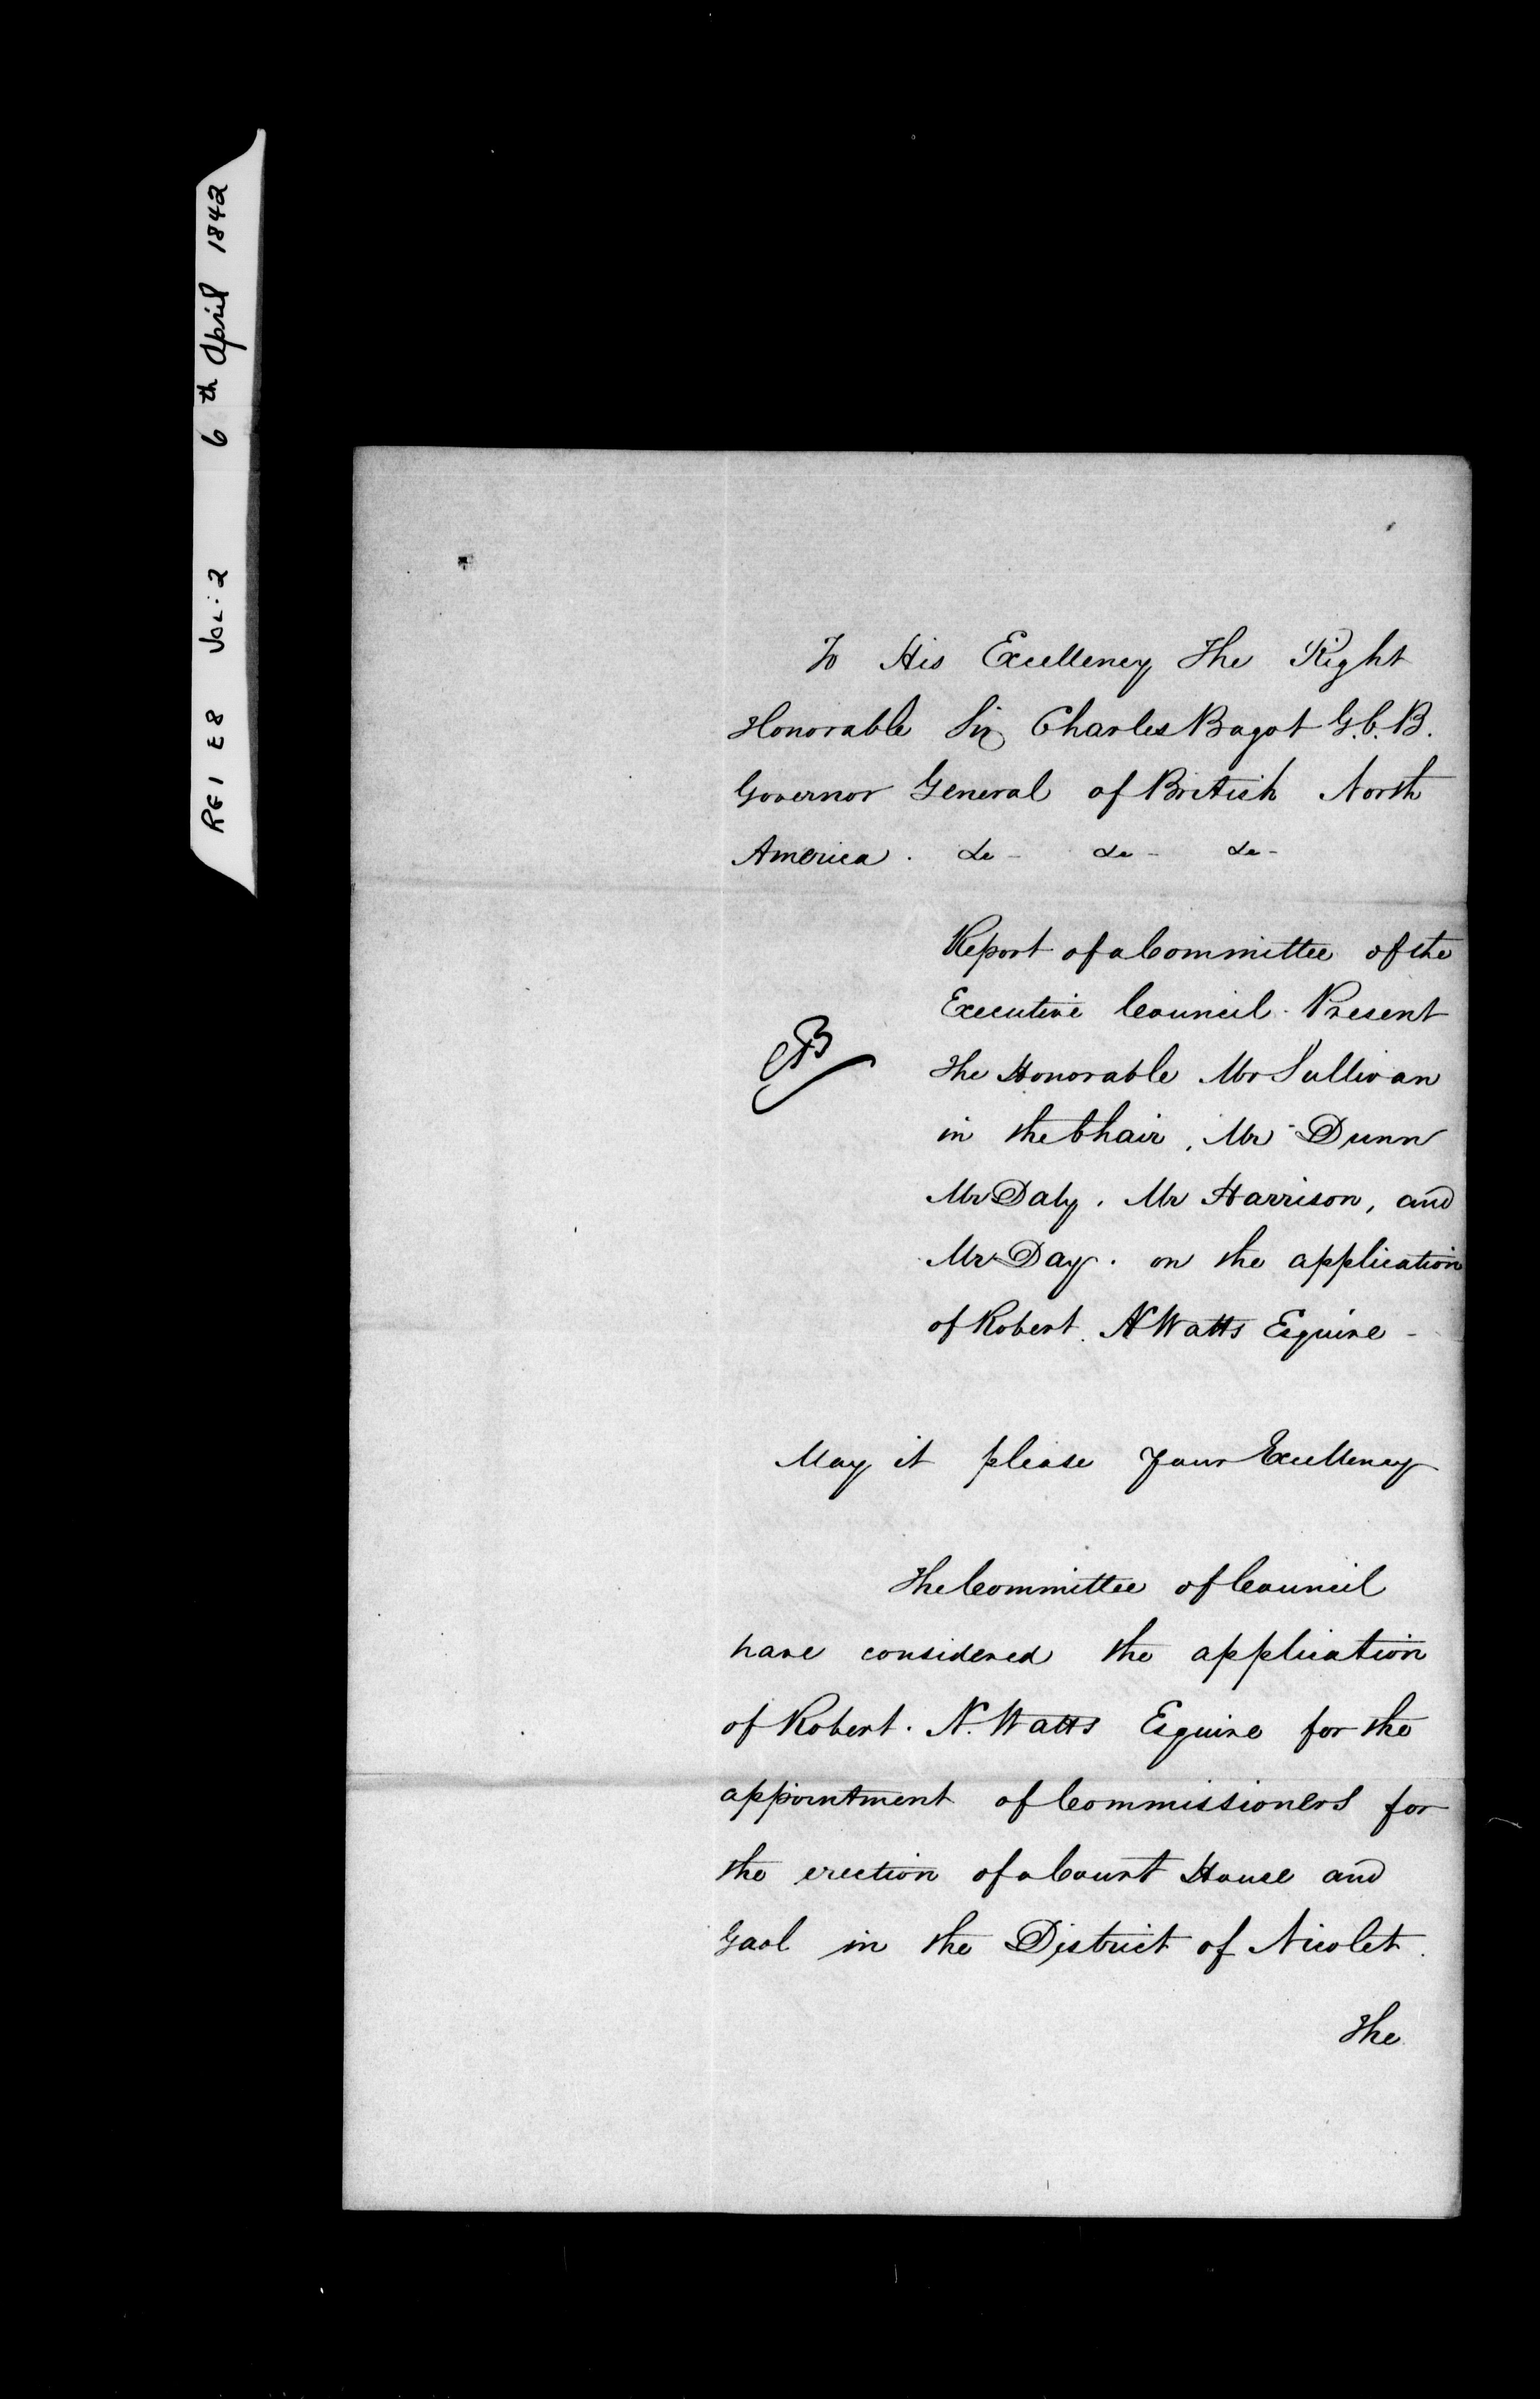 RG 1 E8 VOL: 2 6th April 1842
To His Excellency The Right
Honorable Sir Charles Bagot G.C.B.
Governor General of British North
America . &c - &c - &c -
Report of a Committee of the
Executive Council. Present
The Honorable Mr Sullivan
in the Chair, Mr Dunn
Mr Daly, Mr Harrison, and
Mr Day. on the application
of Robert. N Watts Esquire -
CB
May it please Your Excellency
The Committee of Council
have considered the application
of Robert. N. Watts Esquire for the
appointment of Commissioners for
the erection of a Court House and
Gaol in the District of Nicolet.
The